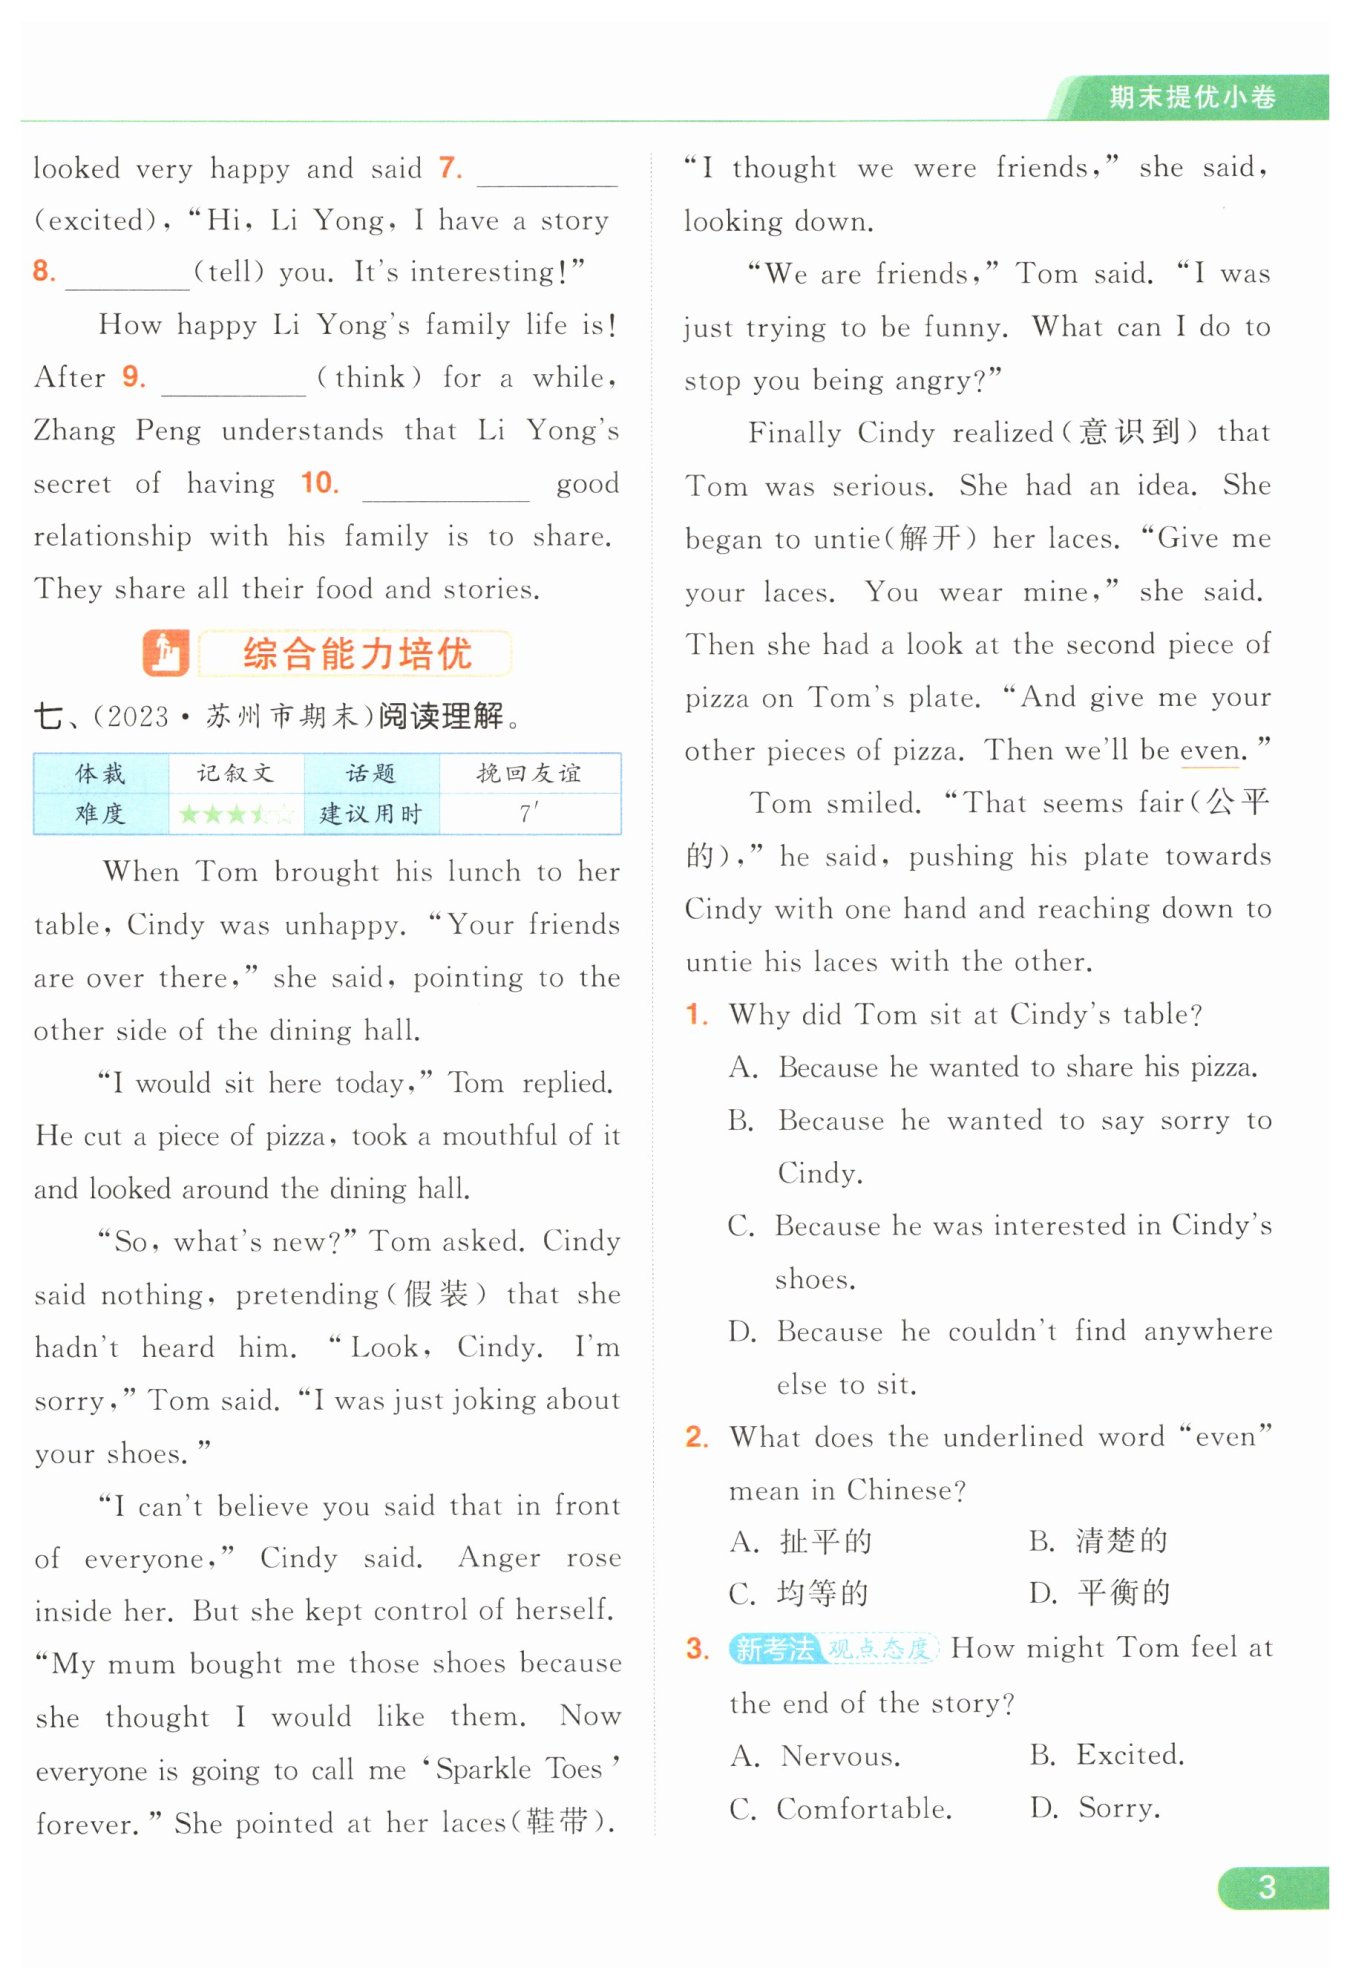 期末提优小卷
looked very happy and said 7. ________
(excited), “Hi, Li Yong, I have a story
8. ________ (tell) you. It's interesting!”
How happy Li Yong's family life is!
After 9. ________ (think) for a while,
Zhang Peng understands that Li Yong's
secret of having 10. ________ good
relationship with his family is to share.
They share all their food and stories.
综合能力培优
七、(2023·苏州市期末)阅读理解。
体裁 记叙文 话题 挽回友谊
难度 ★★★☆☆ 建议用时 7′
When Tom brought his lunch to her
table, Cindy was unhappy. “Your friends
are over there,” she said, pointing to the
other side of the dining hall.
“I would sit here today,” Tom replied.
He cut a piece of pizza, took a mouthful of it
and looked around the dining hall.
“So, what's new?” Tom asked. Cindy
said nothing, pretending(假装) that she
hadn't heard him. “Look, Cindy. I'm
sorry,” Tom said. “I was just joking about
your shoes.”
“I can't believe you said that in front
of everyone,” Cindy said. Anger rose
inside her. But she kept control of herself.
“My mum bought me those shoes because
she thought I would like them. Now
everyone is going to call me ‘Sparkle Toes’
forever.” She pointed at her laces(鞋带).
“I thought we were friends,” she said,
looking down.
“We are friends,” Tom said. “I was
just trying to be funny. What can I do to
stop you being angry?”
Finally Cindy realized(意识到) that
Tom was serious. She had an idea. She
began to untie(解开) her laces. “Give me
your laces. You wear mine,” she said.
Then she had a look at the second piece of
pizza on Tom's plate. “And give me your
other pieces of pizza. Then we'll be even.”
Tom smiled. “That seems fair(公平
的),” he said, pushing his plate towards
Cindy with one hand and reaching down to
untie his laces with the other.
1. Why did Tom sit at Cindy's table?
A. Because he wanted to share his pizza.
B. Because he wanted to say sorry to
Cindy.
C. Because he was interested in Cindy's
shoes.
D. Because he couldn't find anywhere
else to sit.
2. What does the underlined word “even”
mean in Chinese?
A. 扯平的 B. 清楚的
C. 均等的 D. 平衡的
3. 新考法 观点态度 How might Tom feel at
the end of the story?
A. Nervous. B. Excited.
C. Comfortable. D. Sorry.
3